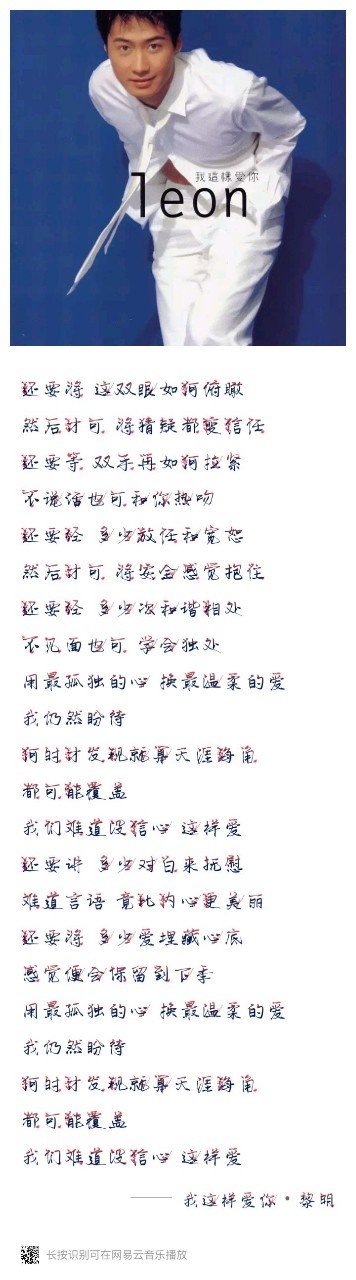 我這樣愛你
leon
还要将 这双眼如何俯瞰
然后才可 将猜疑都变信任
还要等 双手再如何拉紧
不说话也可和你热吻
还要经 多少放任和宽恕
然后才可 将安全感觉抱住
还要经 多少次和谐相处
不见面也可 学会独处
用最孤独的心 换最温柔的爱
我仍然盼待
何时才发现就算天涯海角
都可能覆盖
我们难道没信心 这样爱
还要讲 多少对白来抚慰
难道言语 竟比约心更美丽
还要将 多少爱埋藏心底
感觉便会保留到下季
用最孤独的心 换最温柔的爱
我仍然盼待
何时才发现就算天涯海角
都可能覆盖
我们难道没信心 这样爱
—— 我这样爱你·黎明
长按识别可在网易云音乐播放